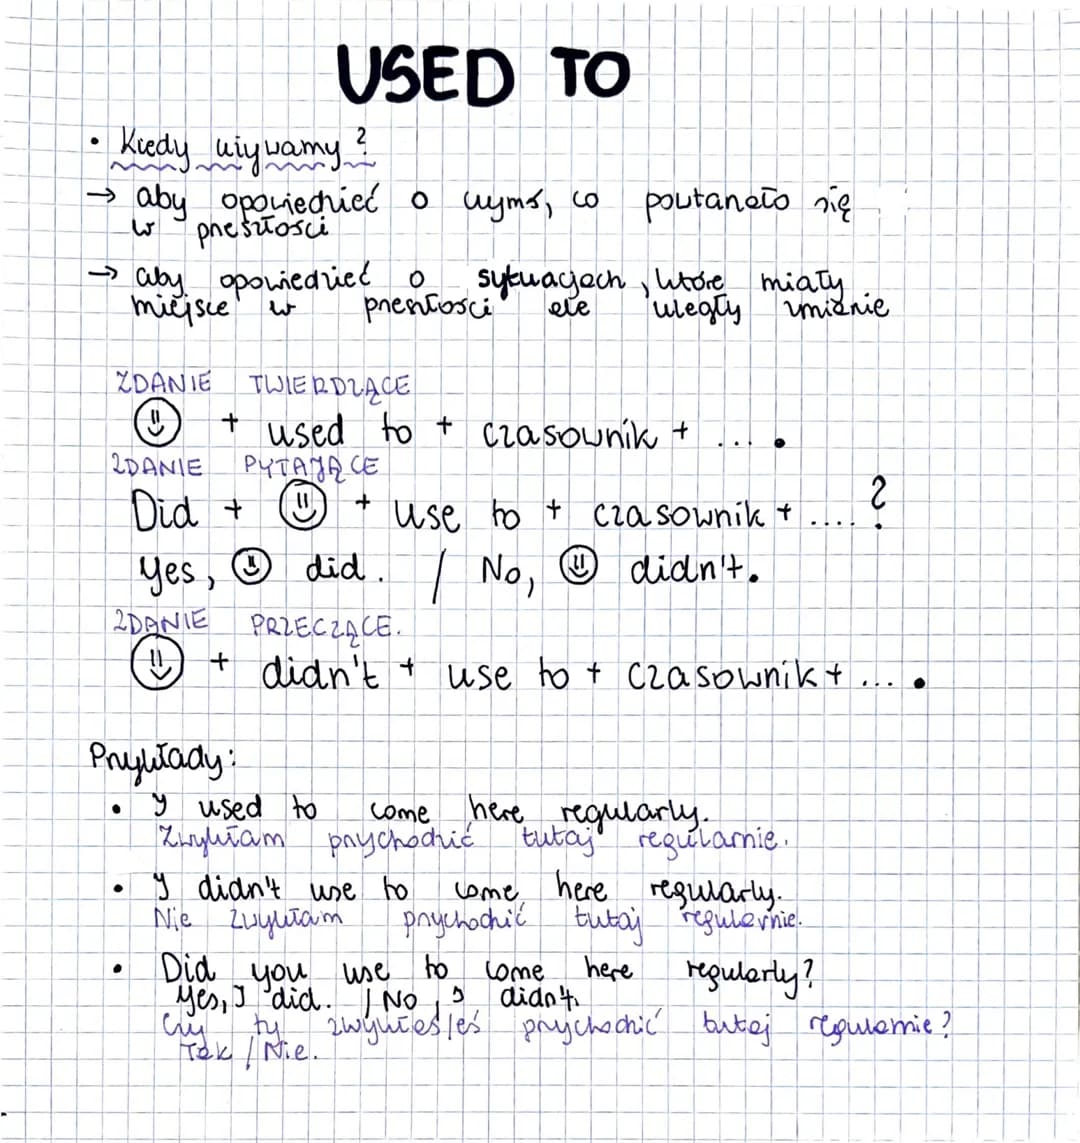 USED TO
• Kiedy używamy?
→ aby opowiedzieć o czymś, co powtarzało się
w przeszłości
→ aby opowiedzieć o sytuacjach, które miały
miejsce w przeszłości ale uległy zmianie
ZDANIE TWIERDZĄCE
+ used to + czasownik + ... .
ZDANIE PYTAJĄCE
Did + + use to + czasownik + .... ?
Yes, did. / No, didn't.
ZDANIE PRZECZĄCE.
+ didn't + use to + czasownik + ... .
Przykłady:
• I used to come here regularly.
Zwykłam przychodzić tutaj regularnie.
• I didn't use to come here regularly.
Nie zwykłam przychodzić tutaj regularnie.
• Did you use to come here regularly?
Yes, I did. / No, I didn't.
Czy ty zwykłeś/łeś przychodzić tutaj regularnie?
Tak / Nie.